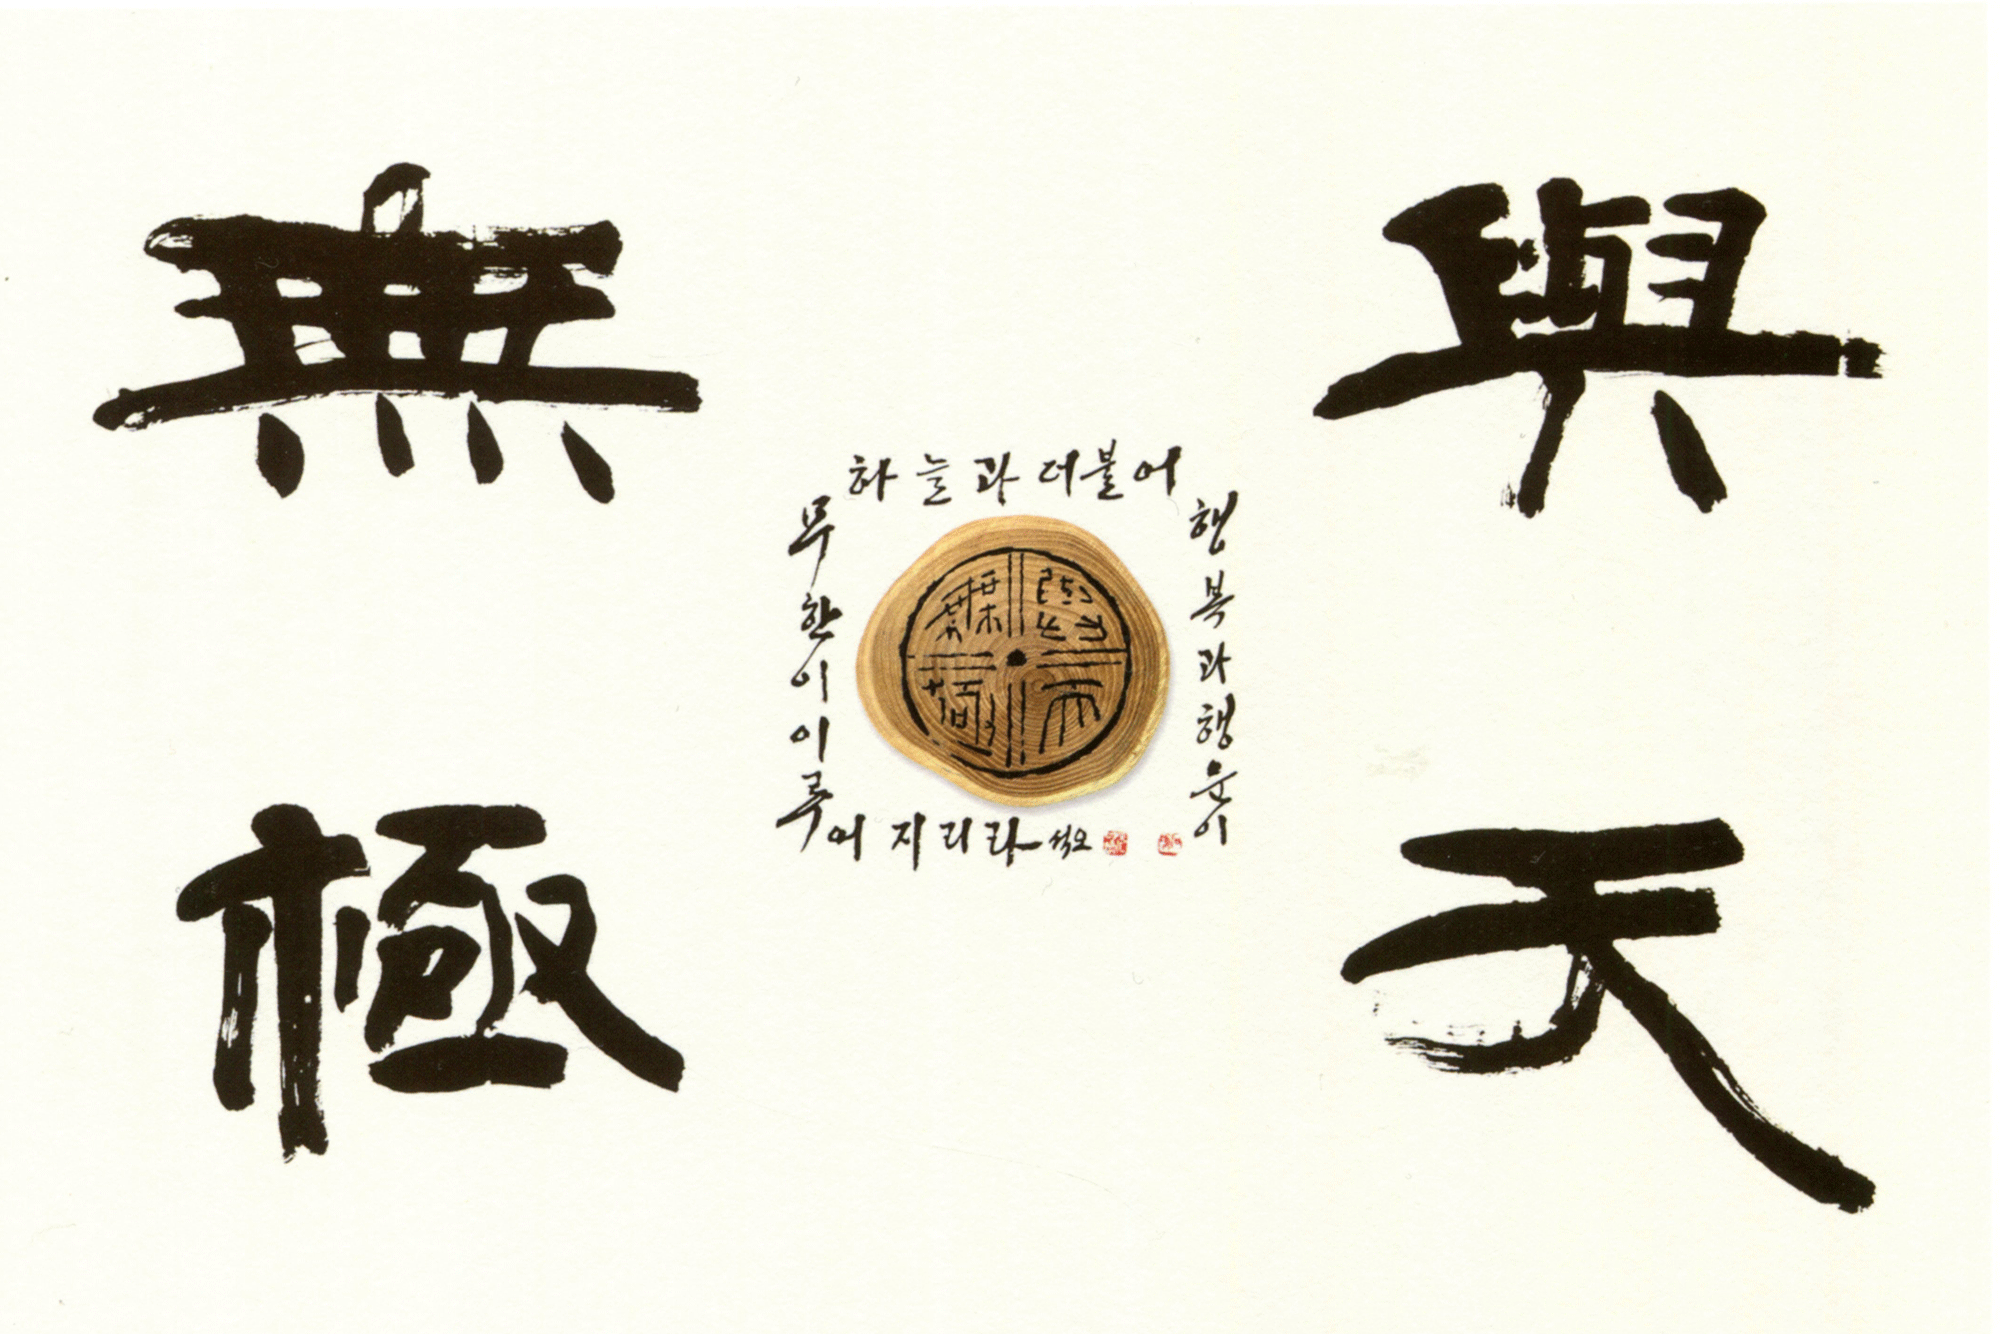 與天
無極
하늘과 더불어
행복과 행운이
무한이 이루
어지리라 석오
與天
無極